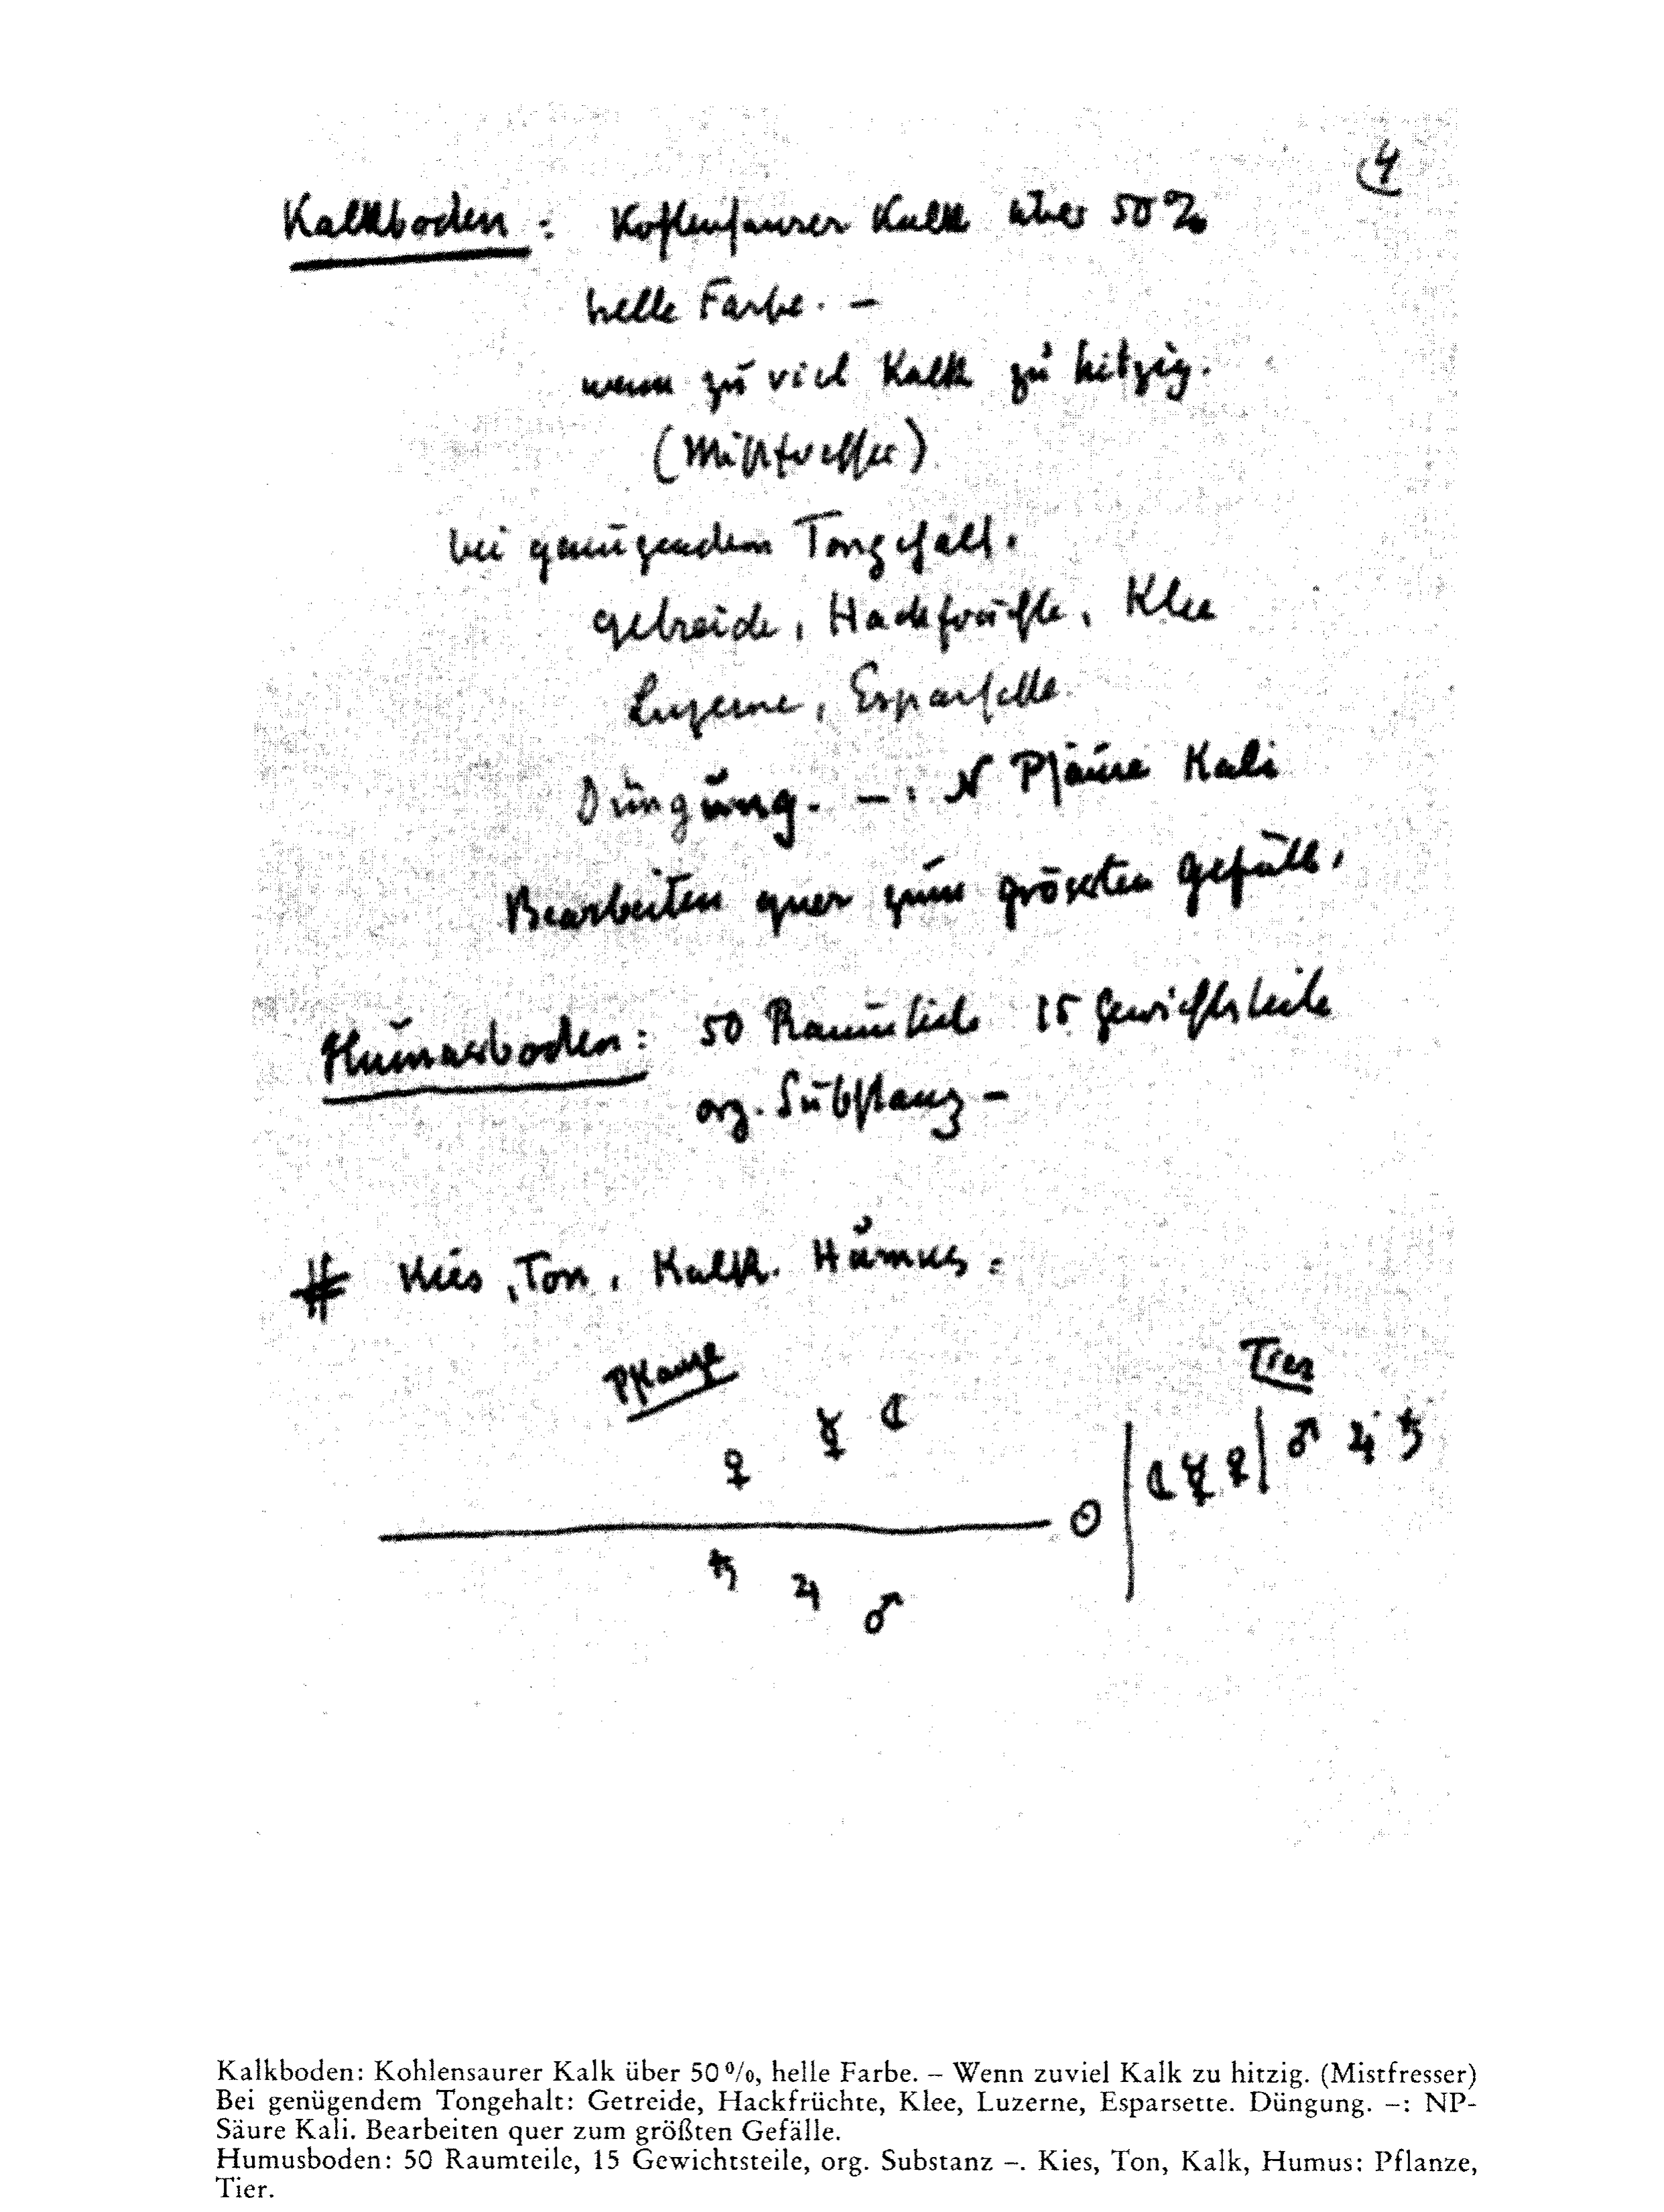 4
Kalkboden: Kohlensaurer Kalk über 50%
helle Farbe. –
wenn zu viel Kalk zu hitzig.
(Mistfresser)
bei genügendem Tongehalt.
Getreide, Hackfrüchte, Klee
Luzerne, Esparsette.
Düngung. –: N Psäure Kali
Bearbeiten quer zum grössten Gefälle.
Humusboden: 50 Raumteile 15 Gewichtsteile
org. Substanz –
# Kies, Ton, Kalk. Humus:
Pflanze Tier
♀ ☿ ☾
☉ | ☾ ☿ ♀ | ♂ ♃ ♄
♄ ♃ ♂
Kalkboden: Kohlensaurer Kalk über 50%, helle Farbe. – Wenn zuviel Kalk zu hitzig. (Mistfresser)
Bei genügendem Tongehalt: Getreide, Hackfrüchte, Klee, Luzerne, Esparsette. Düngung. –: NP-
Säure Kali. Bearbeiten quer zum größten Gefälle.
Humusboden: 50 Raumteile, 15 Gewichtsteile, org. Substanz –. Kies, Ton, Kalk, Humus: Pflanze,
Tier.